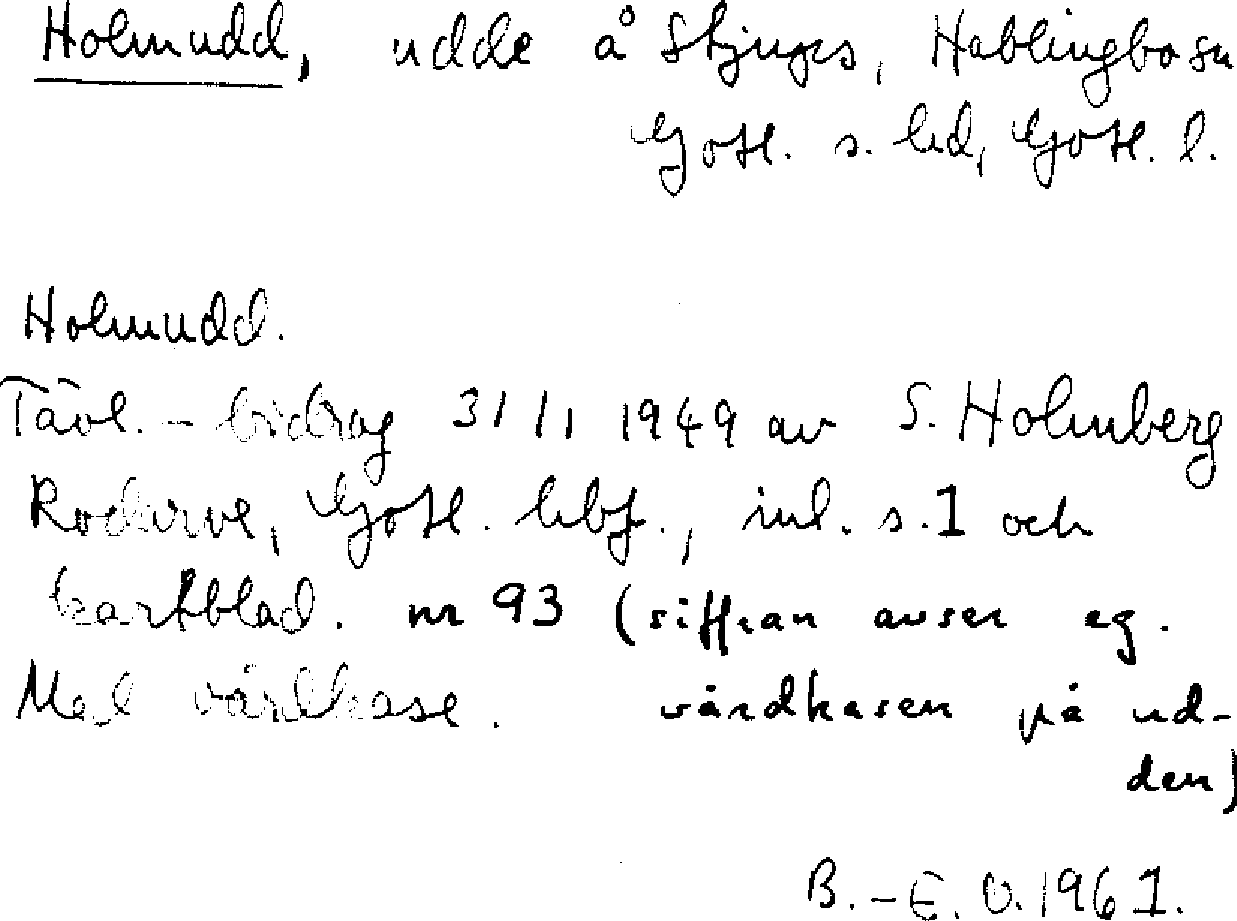 Holmudd, udde å Stjuges, Hablingbo sn
Gotl. s. hd, Gotl. l.
Holmudd.
Tävl.-bidrag 31/1 1949 av S. Holmberg
Rodarve, Gotl. hbf., inl. s. 1 och
kartblad. nr 93 (siffran avser eg.
Med vårdkase. vårdkasen på ud-
den)
B.-E. O. 1961.